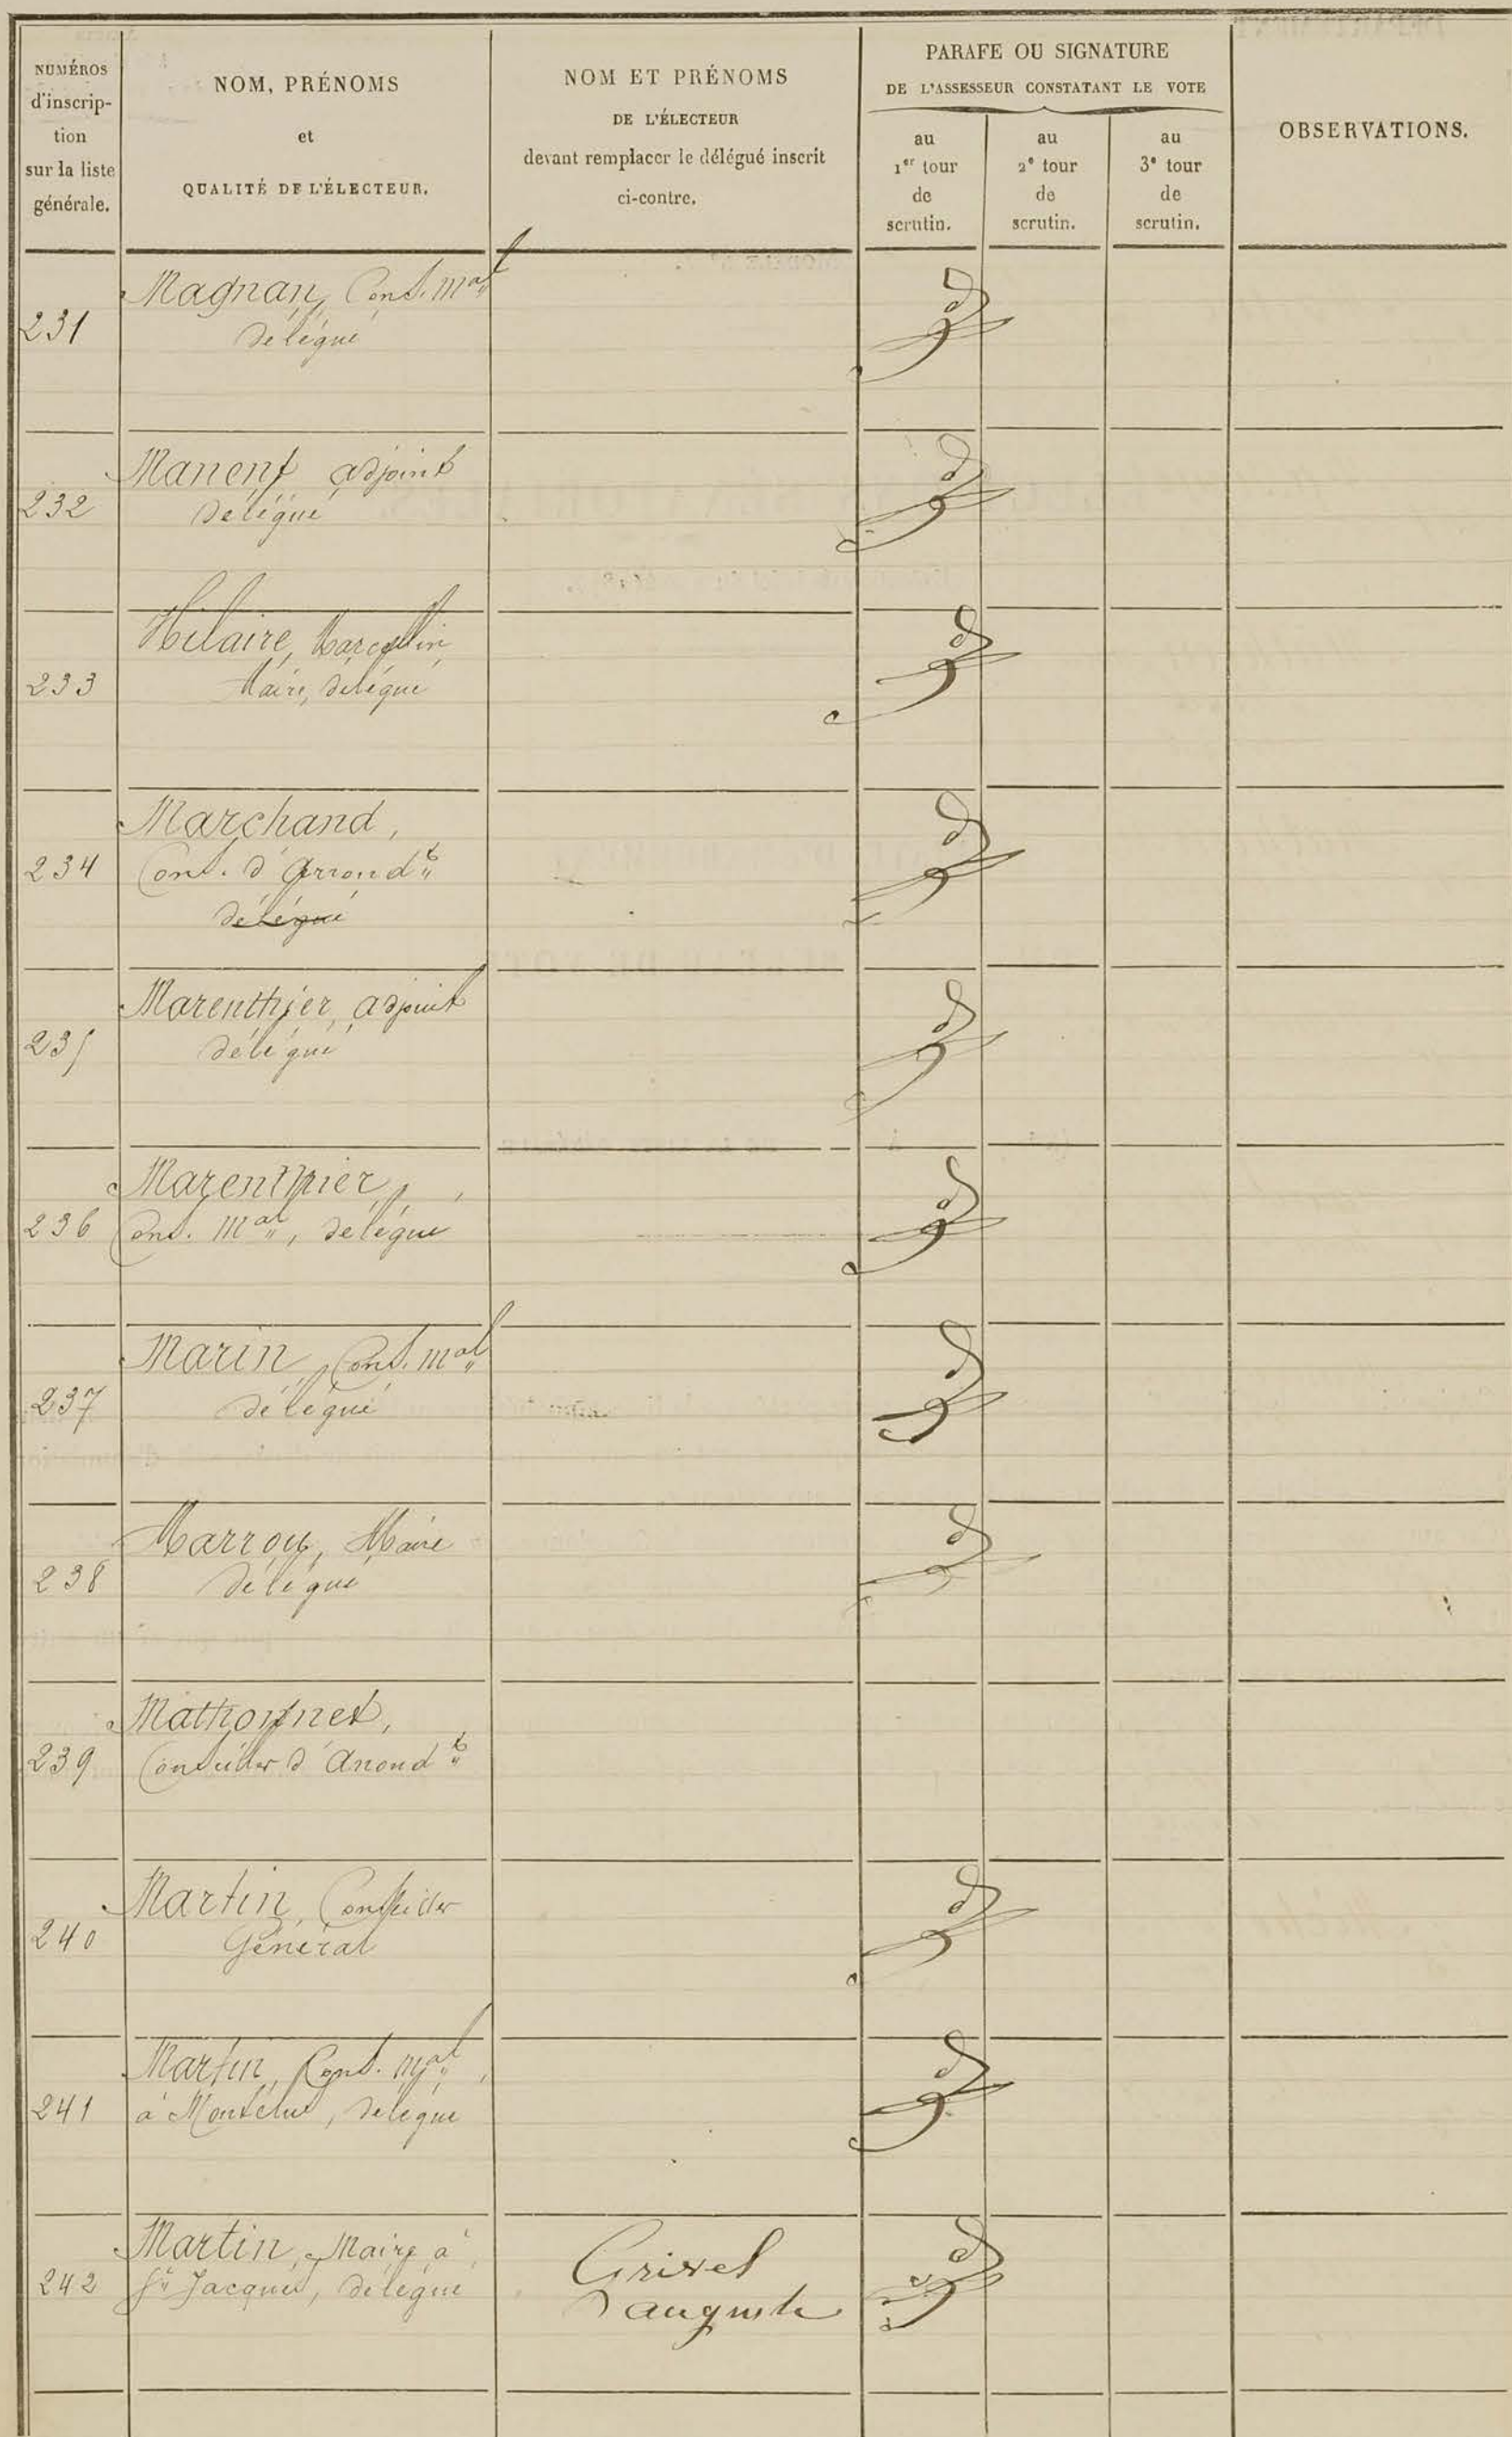 NUMÉROS
d'inscrip-
tion
sur la liste
générale.
NOM, PRÉNOMS
et
QUALITÉ DE L'ÉLECTEUR.
NOM ET PRÉNOMS
DE L'ÉLECTEUR
devant remplacer le délégué inscrit
ci-contre.
PARAFE OU SIGNATURE
DE L'ASSESSEUR CONSTATANT LE VOTE
au
1er tour
de
scrutin.
au
2e tour
de
scrutin.
au
3e tour
de
scrutin.
OBSERVATIONS.
231
Magnan, Cons. Mal
délégué
232
Manent adjoint
délégué
233
Hilaire, Marcellin
Maire, délégué
234
Marchand,
Cons. d'Arrondt
délégué
235
Marenthier, adjoint
délégué
236
Marenthier,
Cons. Mal, délégué
237
Marin, Cons. Mal
délégué
238
Marrou, Maire
délégué
239
Mathonnet,
Conseiller d'Arrondt
240
Martin, Conseiller
Général
241
Martin, Cons. Mal,
à Montclus, délégué
242
Martin, Maire à
St Jacques, délégué
Grivel
auguste